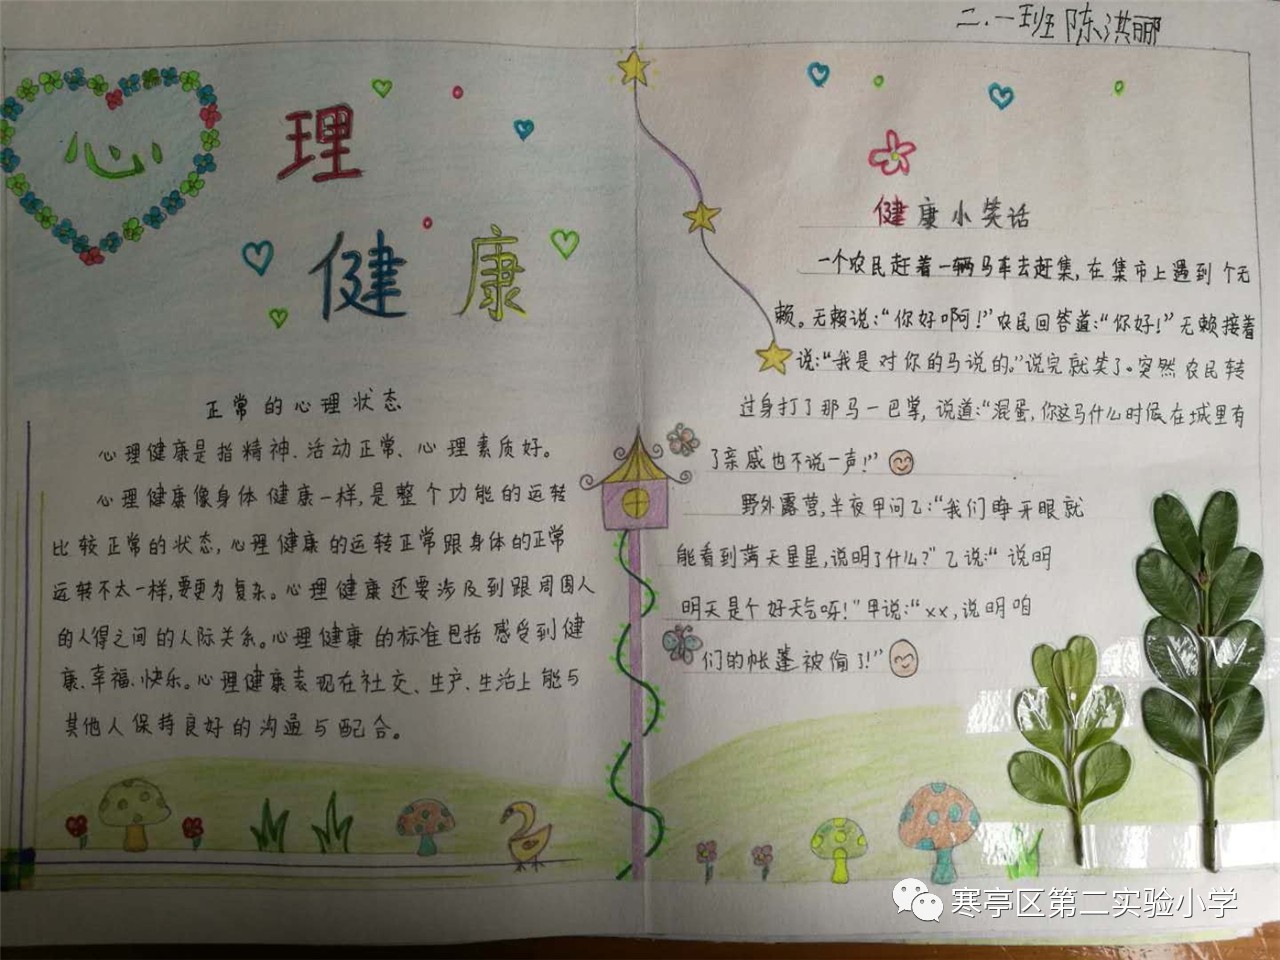 二.一班陈淇郦
心理
健康
正常的心理状态
心理健康是指精神、活动正常、心理素质好。
心理健康像身体健康一样,是整个功能的运转
比较正常的状态,心理健康的运转正常跟身体的正常
运转不太一样,要更为复杂。心理健康还要涉及到跟周围人
的人得之间的人际关系。心理健康的标准包括感受到健
康、幸福、快乐。心理健康表现在社交、生产、生活上能与
其他人保持良好的沟通与配合。
健康小笑话
一个农民赶着一辆马车去赶集,在集市上遇到个无
赖。无赖说:“你好啊!”农民回答道:“你好!”无赖接着
说:“我是对你的马说的。”说完就笑了。突然农民转
过身打了那马一巴掌,说道:“混蛋,你这马什么时候在城里有
了亲戚也不说一声!”
野外露营,半夜甲问乙:“我们睁开眼就
能看到满天星星,说明了什么?”乙说:“说明
明天是个好天气呀!”甲说:“xx,说明咱
们的帐篷被偷了!”
寒亭区第二实验小学